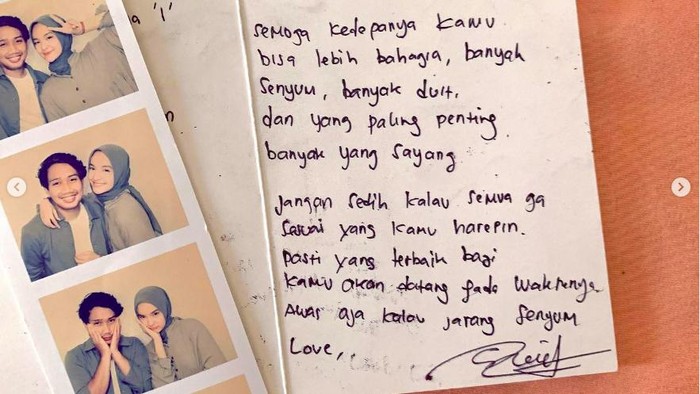 semoga kedepanya kamu
bisa lebih bahagia, banyak
senyum, banyak duit,
dan yang paling penting
banyak yang sayang
jangan sedih kalau semua ga
sesuai yang kamu harepin.
pasti yang terbaik bagi
kamu akan datang pada waktunya
Awas aja kalau jarang senyum
Love,